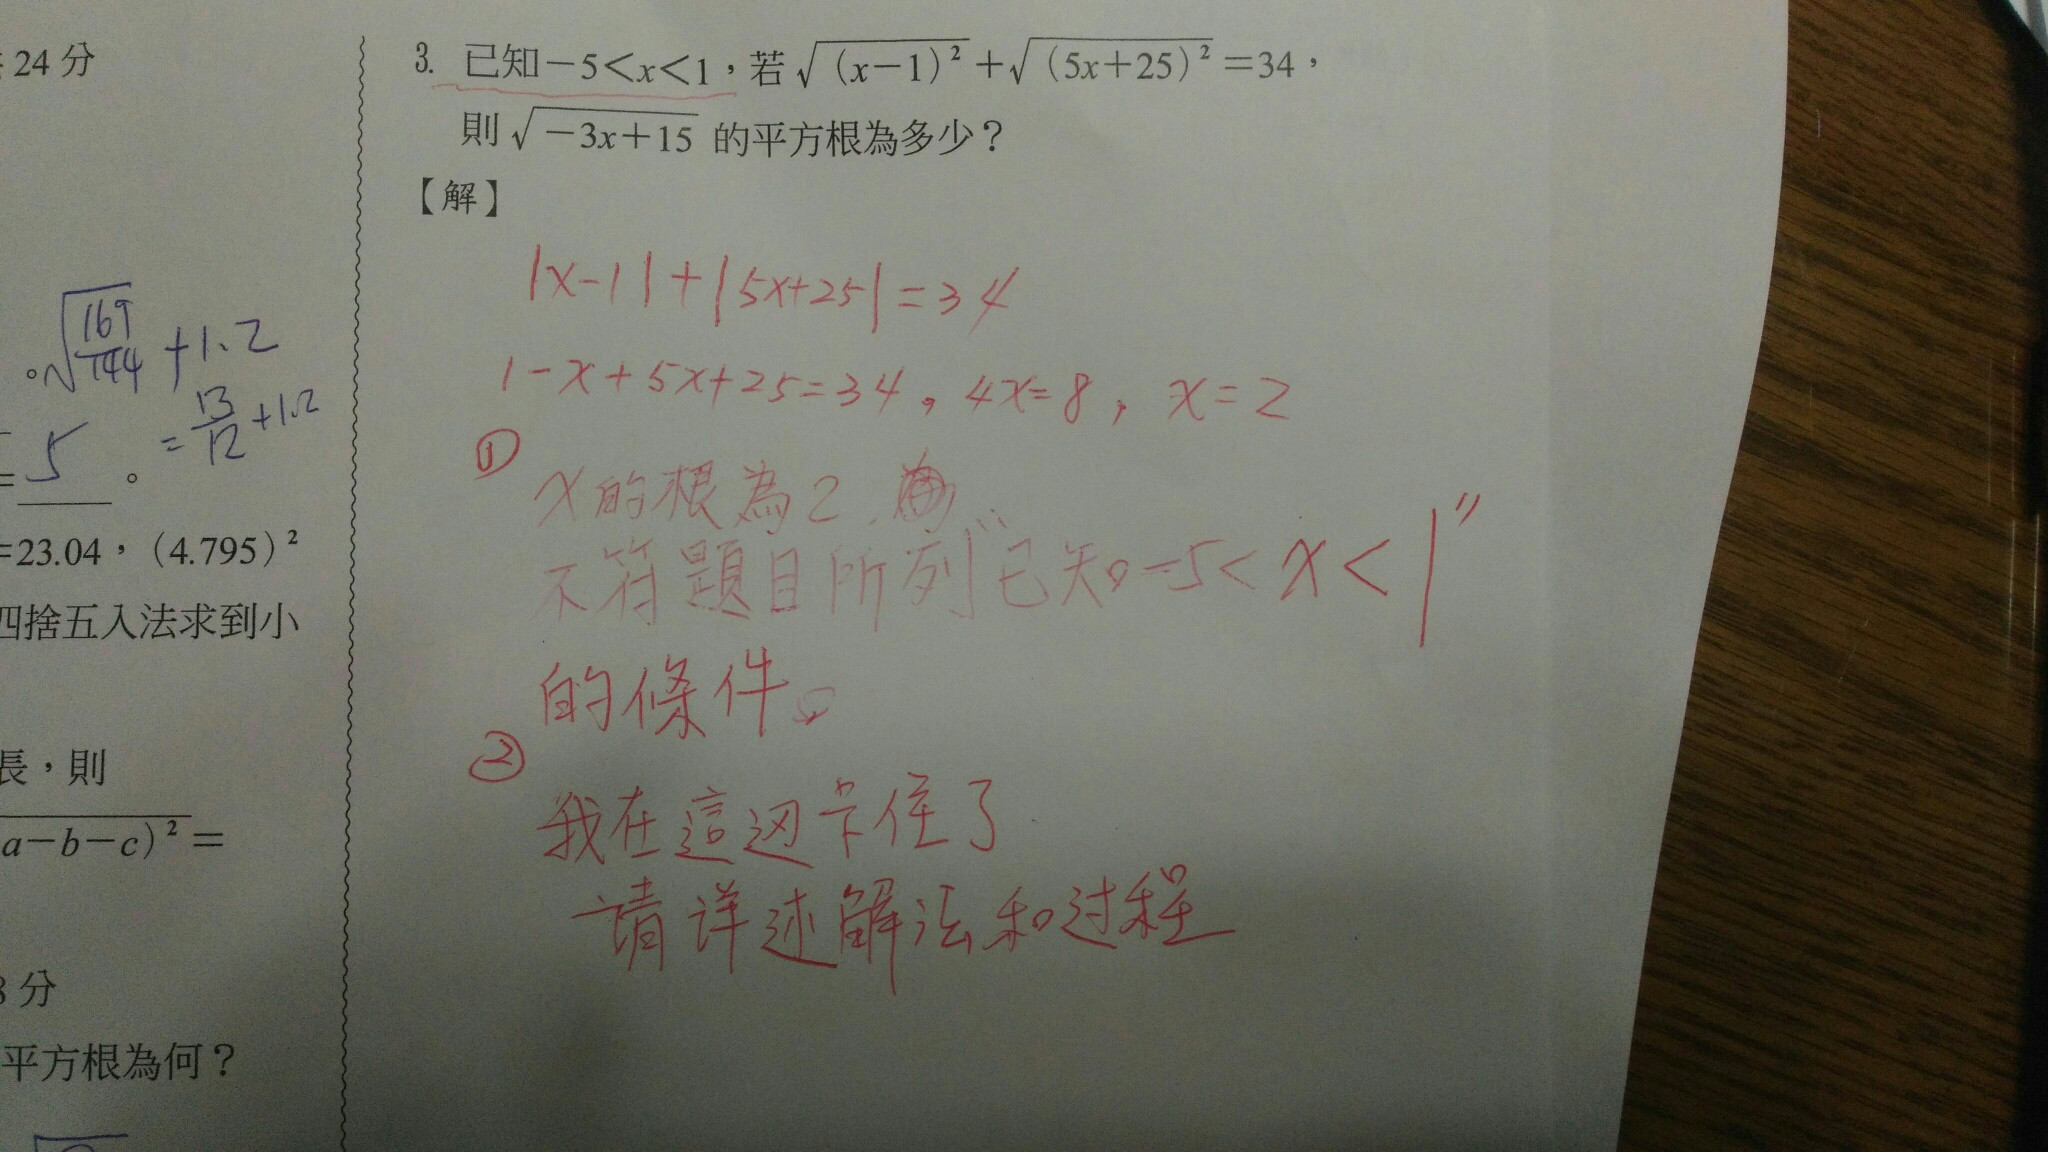 24分
√169/144 + 1.2
= 13/12 + 1.2
= 5 。
=23.04，(4.795)²
四捨五入法求到小
長，則
a－b－c)²＝
分
平方根為何？
3. 已知－5＜x＜1，若√(x－1)²＋√(5x＋25)²＝34，
則√－3x＋15 的平方根為多少？
【解】
|x-1|+|5x+25|=34
1-x+5x+25=34，4x=8，x=2
① x的根為2，
不符題目所列"已知-5<x<1"
的條件。
② 我在這边卡住了
請詳述解法和过程